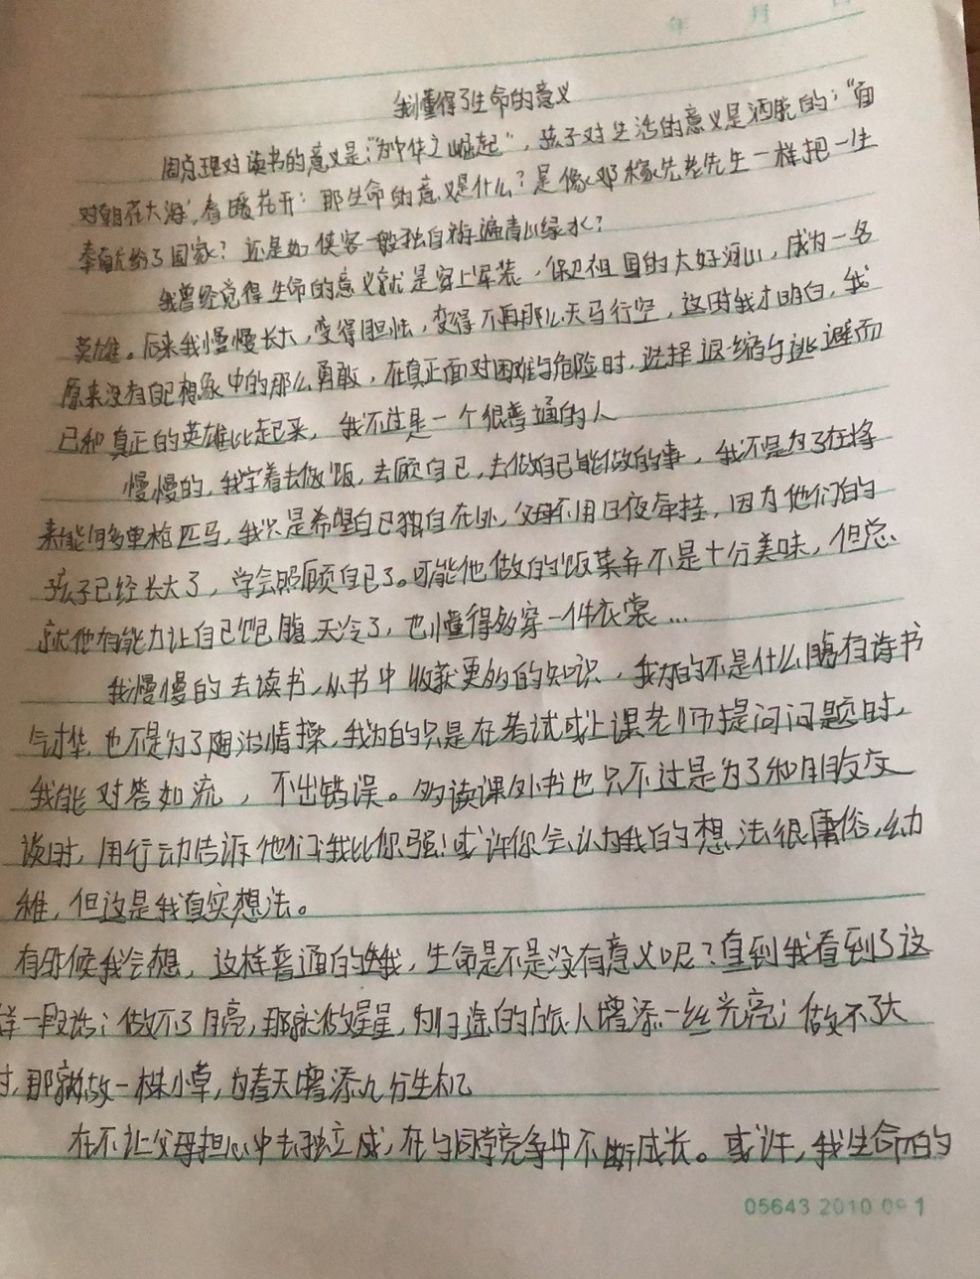 年 月 日
我懂得了生命的意义
周总理对读书的意义是:"为中华之崛起",孩子对生活的意义是洒脱的:"面
对朝花大海,春暖花开:那生命的意义是什么?是像邓稼先老先生一样把一生
奉献给了国家?还是如侠客一般独自游遍青山绿水?
我曾经觉得生命的意义就是穿上军装,保卫祖国的大好河山,成为一名
英雄。后来我慢慢长大,变得胆怯,变得不再那么天马行空,这时我才明白,我
原来没有自己想象中的那么勇敢,在真正面对困难与危险时,选择退缩与逃避而
已和真正的英雄比起来,我不过是一个很普通的人
慢慢的,我学着去做饭,去顾自己,去做自己能做的事,我不是为了在将
来能够多单枪匹马,我只是希望自己独自在外,父母不用日夜牵挂,因为他们的
孩子已经长大了,学会照顾自己了。可能他做的饭菜并不是十分美味,但总
就他有能力让自己饱腹,天冷了,也懂得多穿一件衣裳...
我慢慢的去读书,从书中收获更多的知识,我为的不是什么腹有诗书
气才华,也不是为了陶冶情操,我为的只是在考试或上课老师提问问题时,
我能对答如流,不出错误。多读课外书也只不过是为了和朋友交
谈时,用行动告诉他们:我比你强!或许你会认为我的想法很庸俗,幼
稚,但这是我真实想法。
有时候我会想,这样普通的我,生命是不是没有意义呢?直到我看到了这
样一段话:做不了月亮,那就做星星,为归途的旅人增添一丝光亮;做不了大
树,那就做一株小草,为春天增添几分生机
在不让父母担心中去独立成,在与同学竞争中不断成长。或许,我生命的
05643 2010 09 1